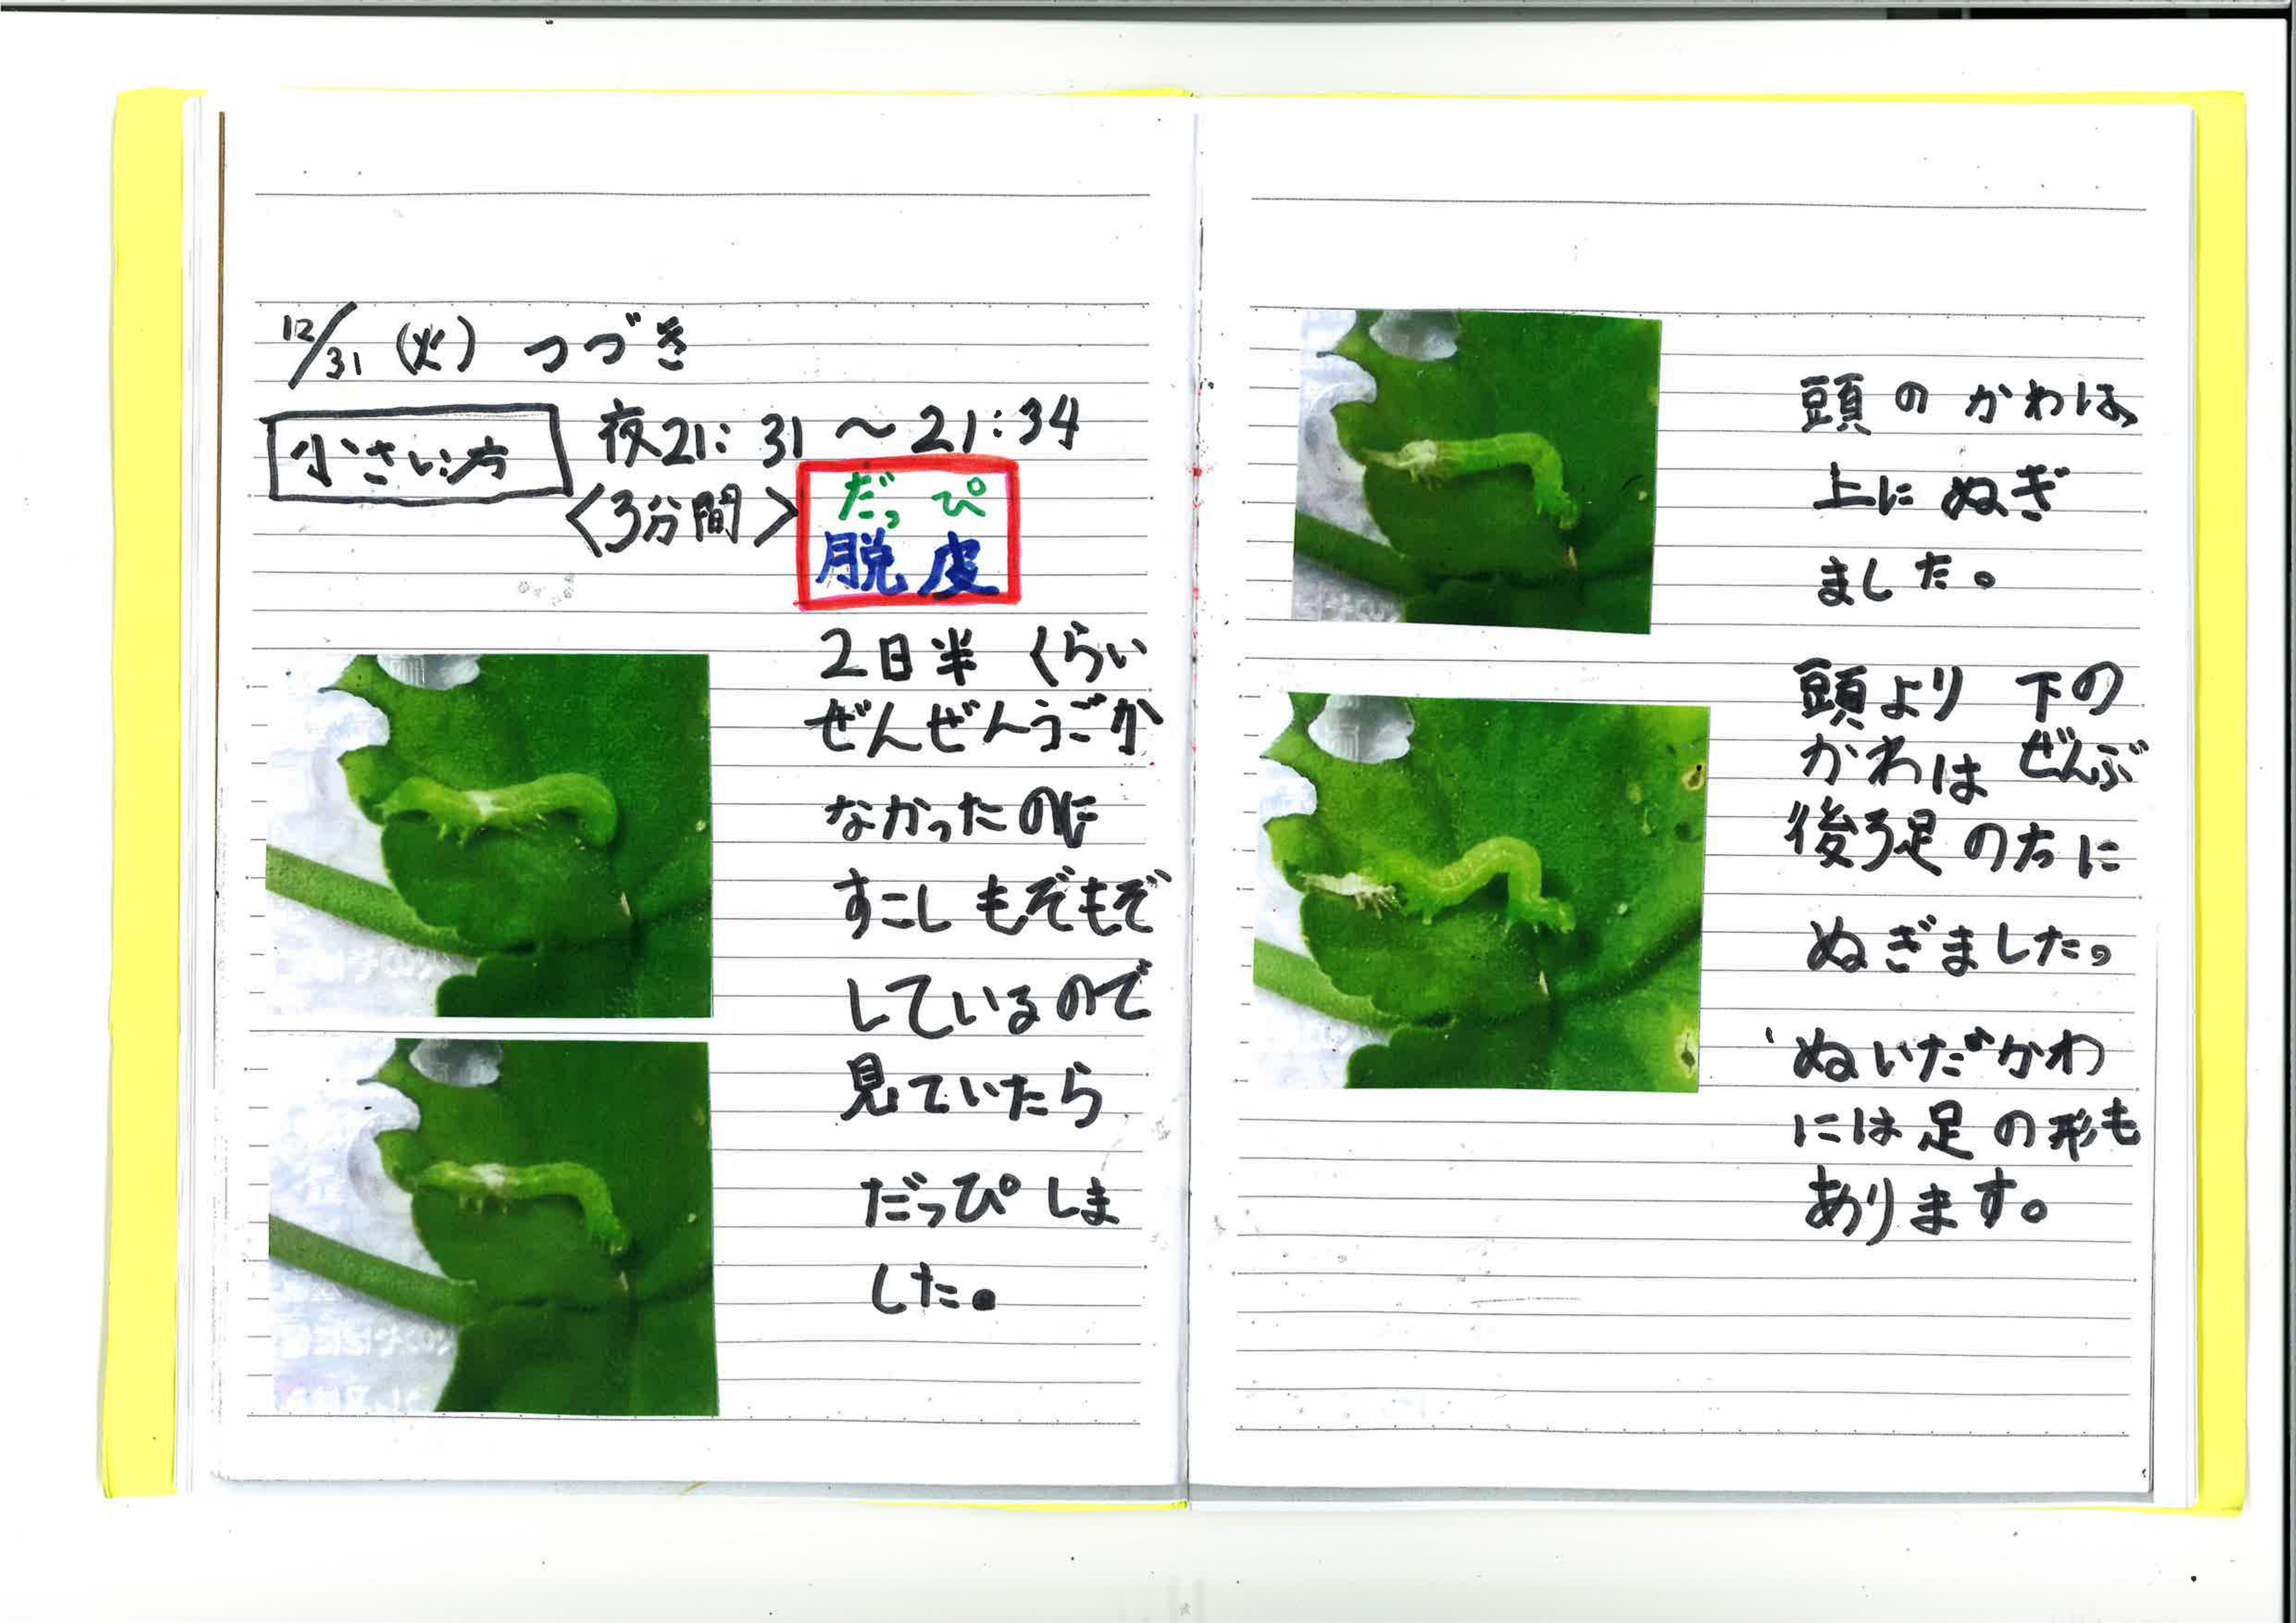 12/31 (火) つづき
小さい方
夜21:31～21:34
<3分間>
だっぴ
脱皮
2日半くらい
ぜんぜんうごか
なかったのに
すこしもぞもぞ
しているので
見ていたら
だっぴしま
した。
頭のかわは、
上にぬぎ
ました。
頭より下の
かわはぜんぶ
後ろ足の方に
ぬぎました。
ぬいだかわ
には足の形も
あります。